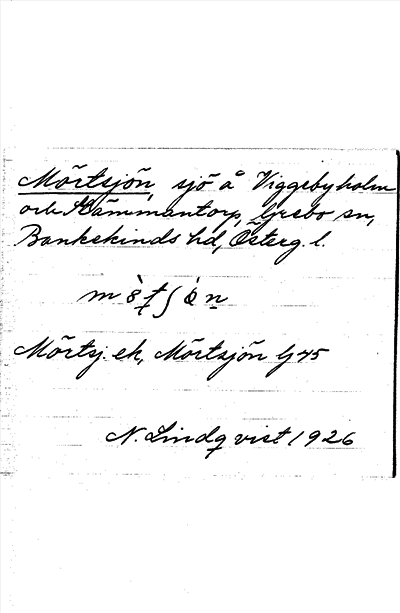 Mörtsjön, sjö å Viggebyholm
och Kämmantorp, Grebo sn,
Bankekinds hd, Österg. l.
Mörtsj. ek, Mörtsjön Gj 45
N. Lindqvist 1926